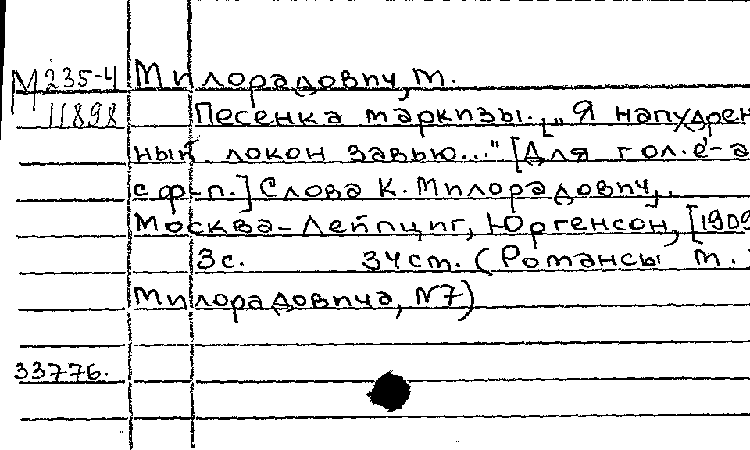 М 235-4 Милорадович, М.
11898 Песенка маркизы. [„Я напудрен
ный локон завью..." [Для гол. e'-a
с ф-п.] Слова К. Милорадович,.
Москва-Лейпциг, Юргенсон, [1909
3с. 34ст. (Романсы М.
Милорадовича, N7)
33776.